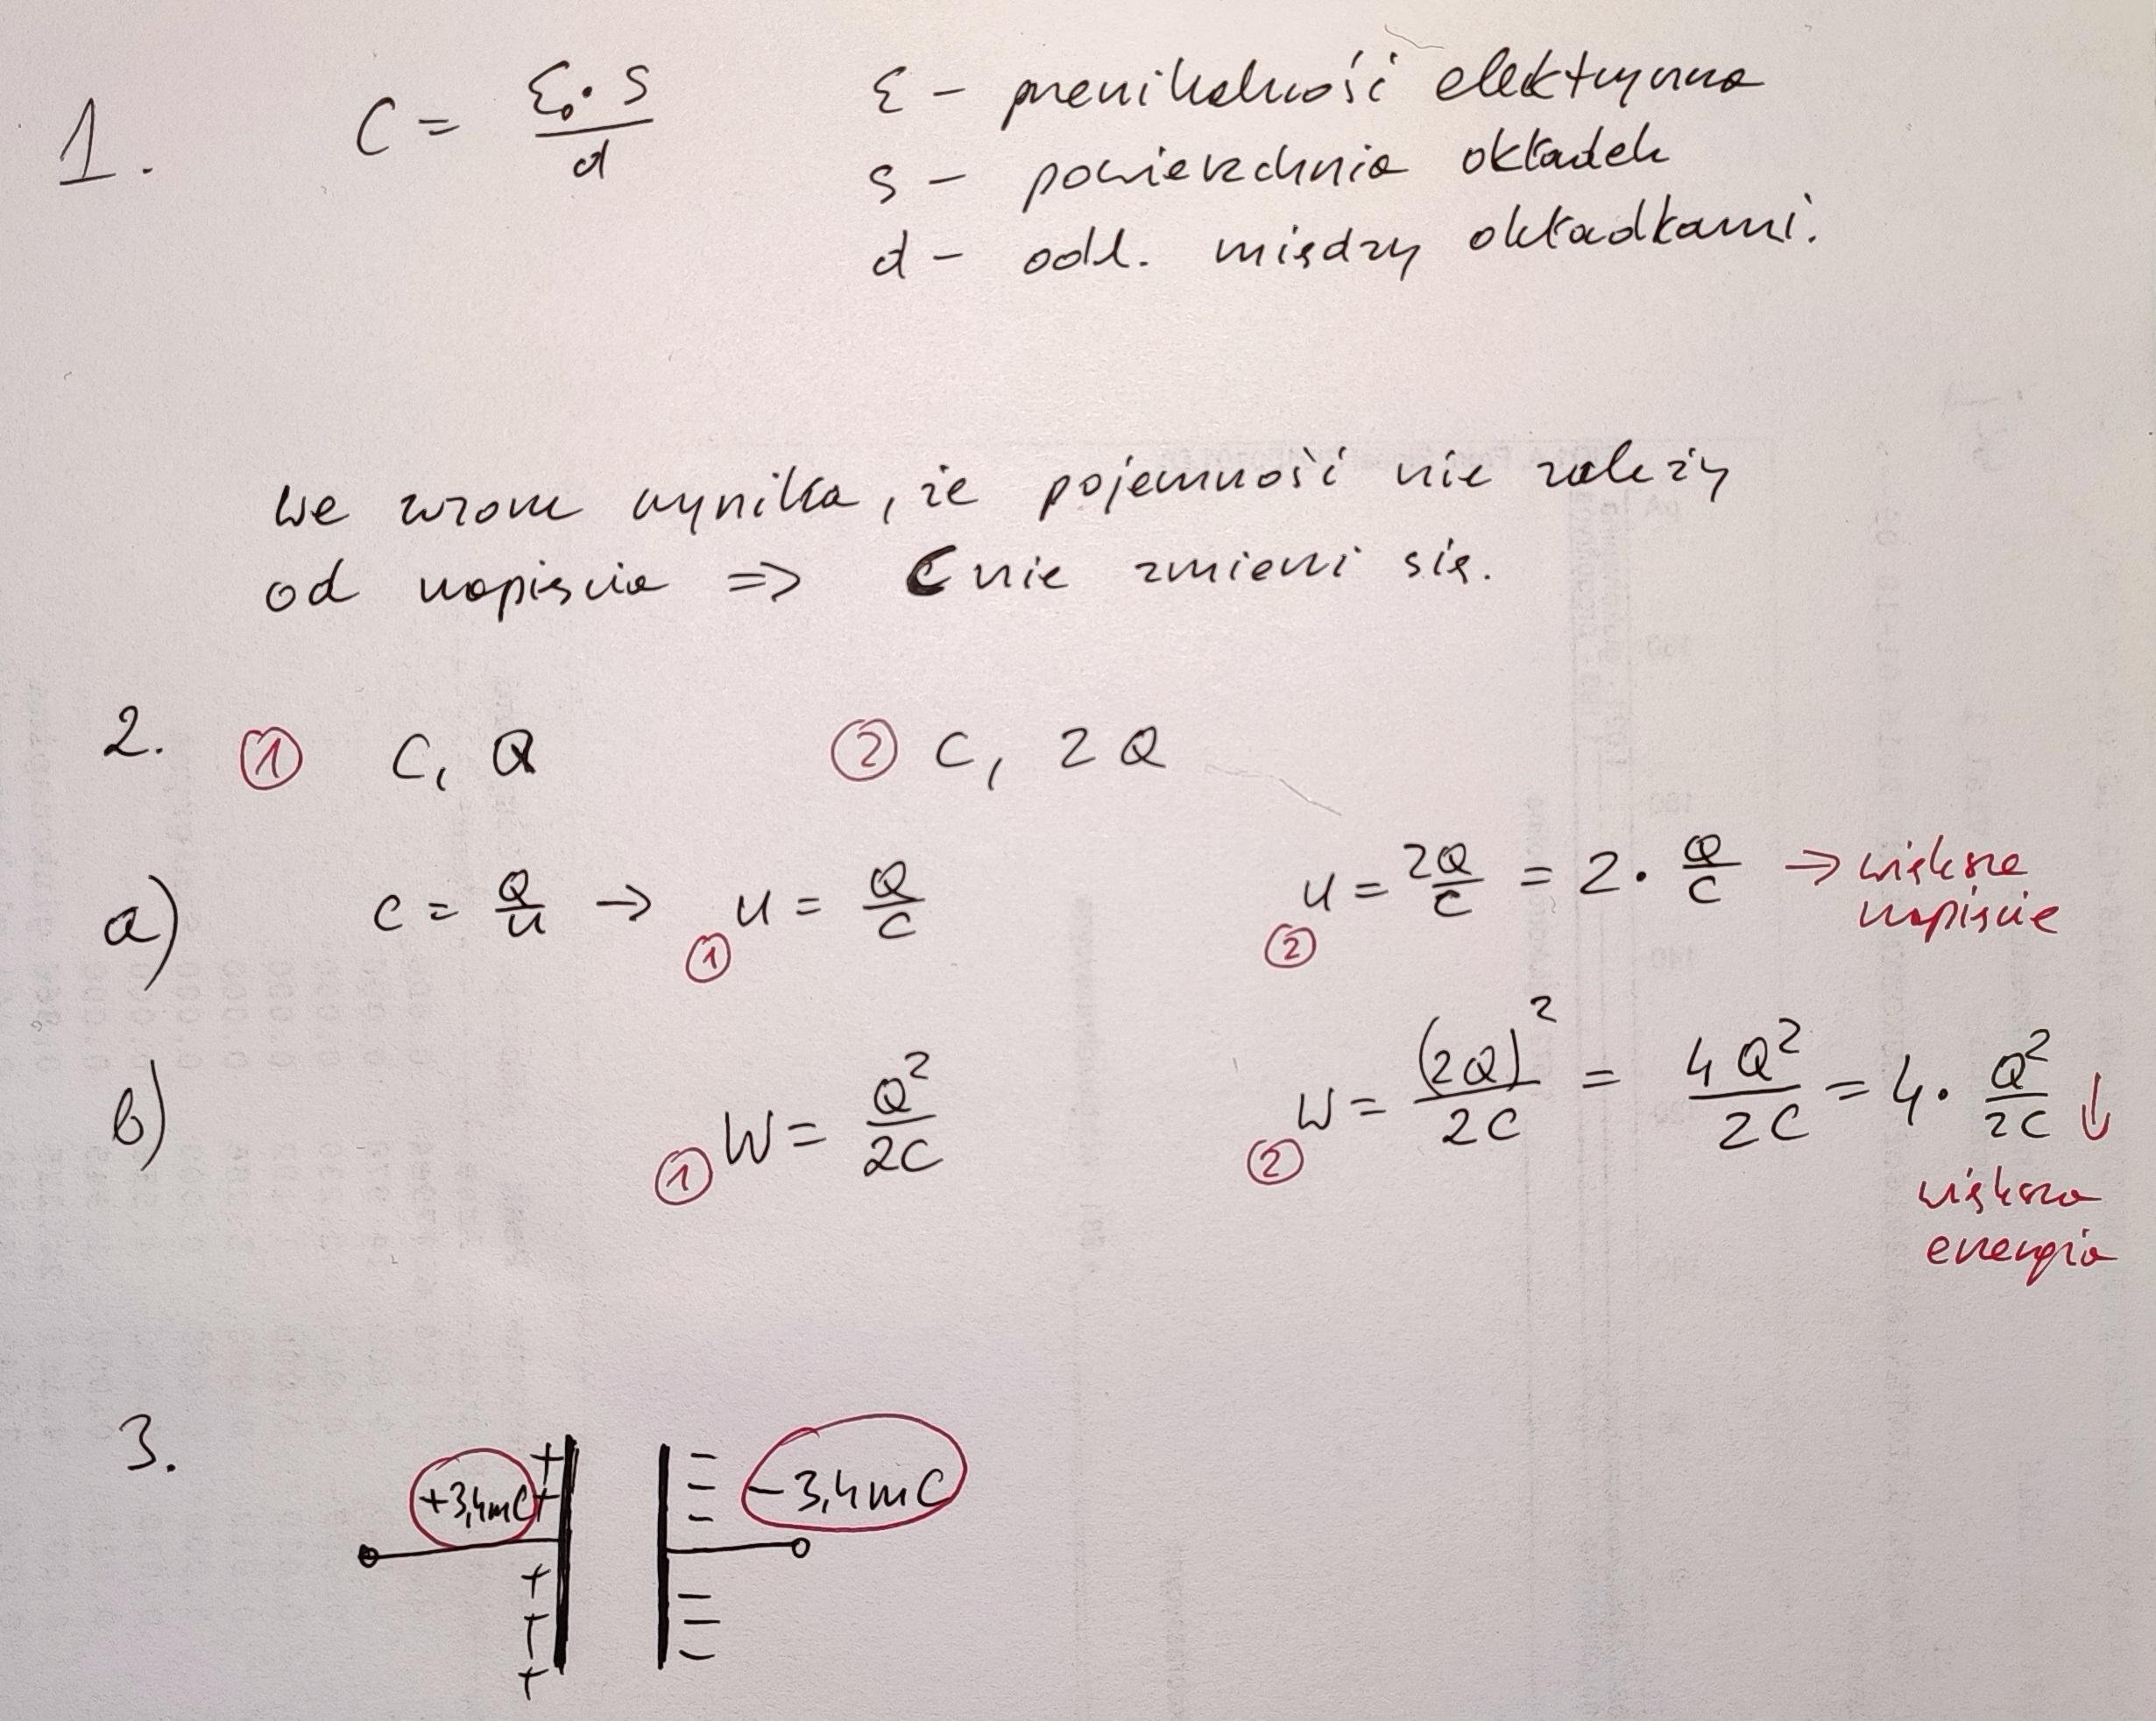 1. C = ε₀ · S / d
ε – przenikalność elektryczna
S – powierzchnia okładek
d – odl. między okładkami.
We wzoru wynika, że pojemność nie zależy
od napięcia => C nie zmieni się.
2. ① C, Q ② C, 2Q
a) C = Q/U → ① U = Q/C ② U = 2Q/C = 2 · Q/C → większe
napięcie
b) ① W = Q²/2C ② W = (2Q)²/2C = 4Q²/2C = 4 · Q²/2C ↓
większa
energia
3. +3,4mC −3,4mC